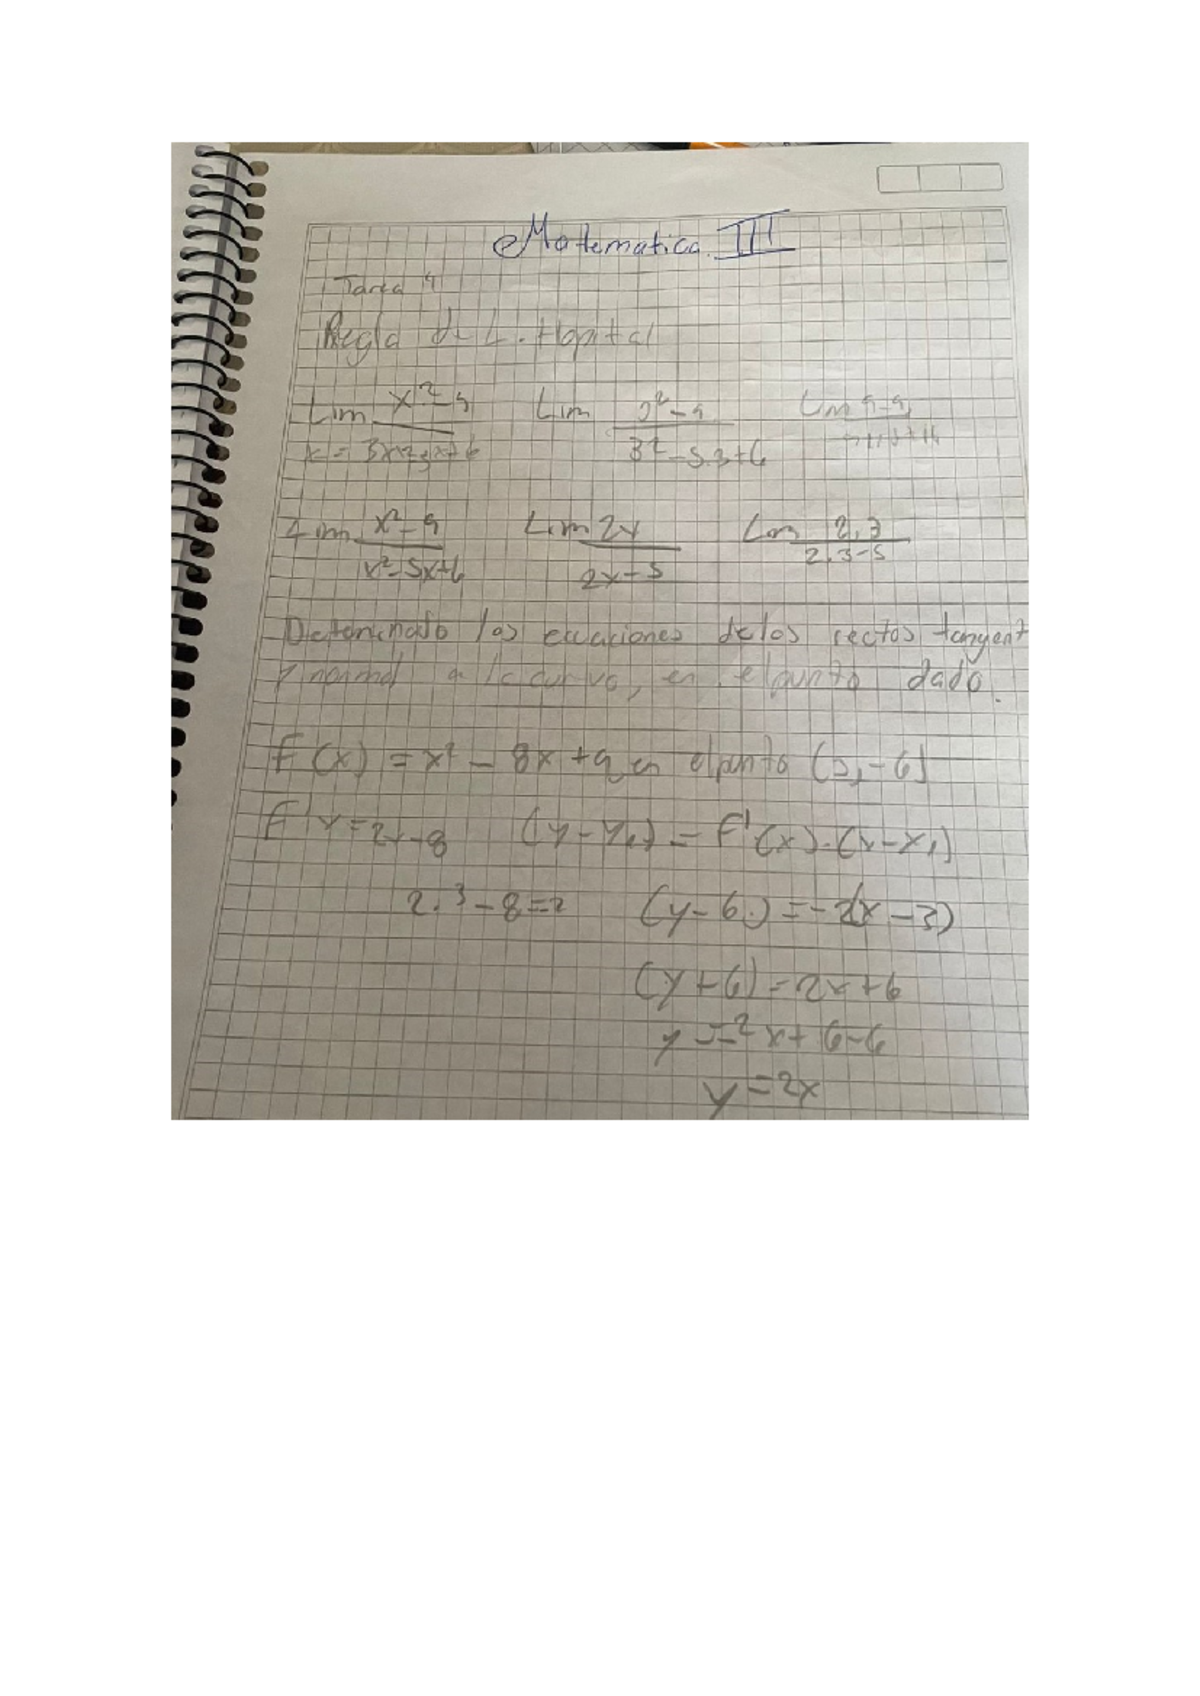 Matematica III
Tarea 4
Regla d L. Hopital
Lim x²-9 Lim 3²-9 Lim 9-9
x = 3 x²-5x+6 3²-5.3+6
Lim x²-9 Lim 2x Lim 2.3
x²-5x+6 2x-5 2.3-5
Determinado los ecuaciones de los rectos tangent
y normal a la curva, en el punto dado.
F(x) = x² - 8x + 9 en el punto (3,-6)
F'x = 2x-8 (y-y₁) = F'(x).(x-x₁)
2.3-8=2 (y-6.) = -2(x-3)
(y+6) = 2x+6
y = -2x+6-6
y = 2x